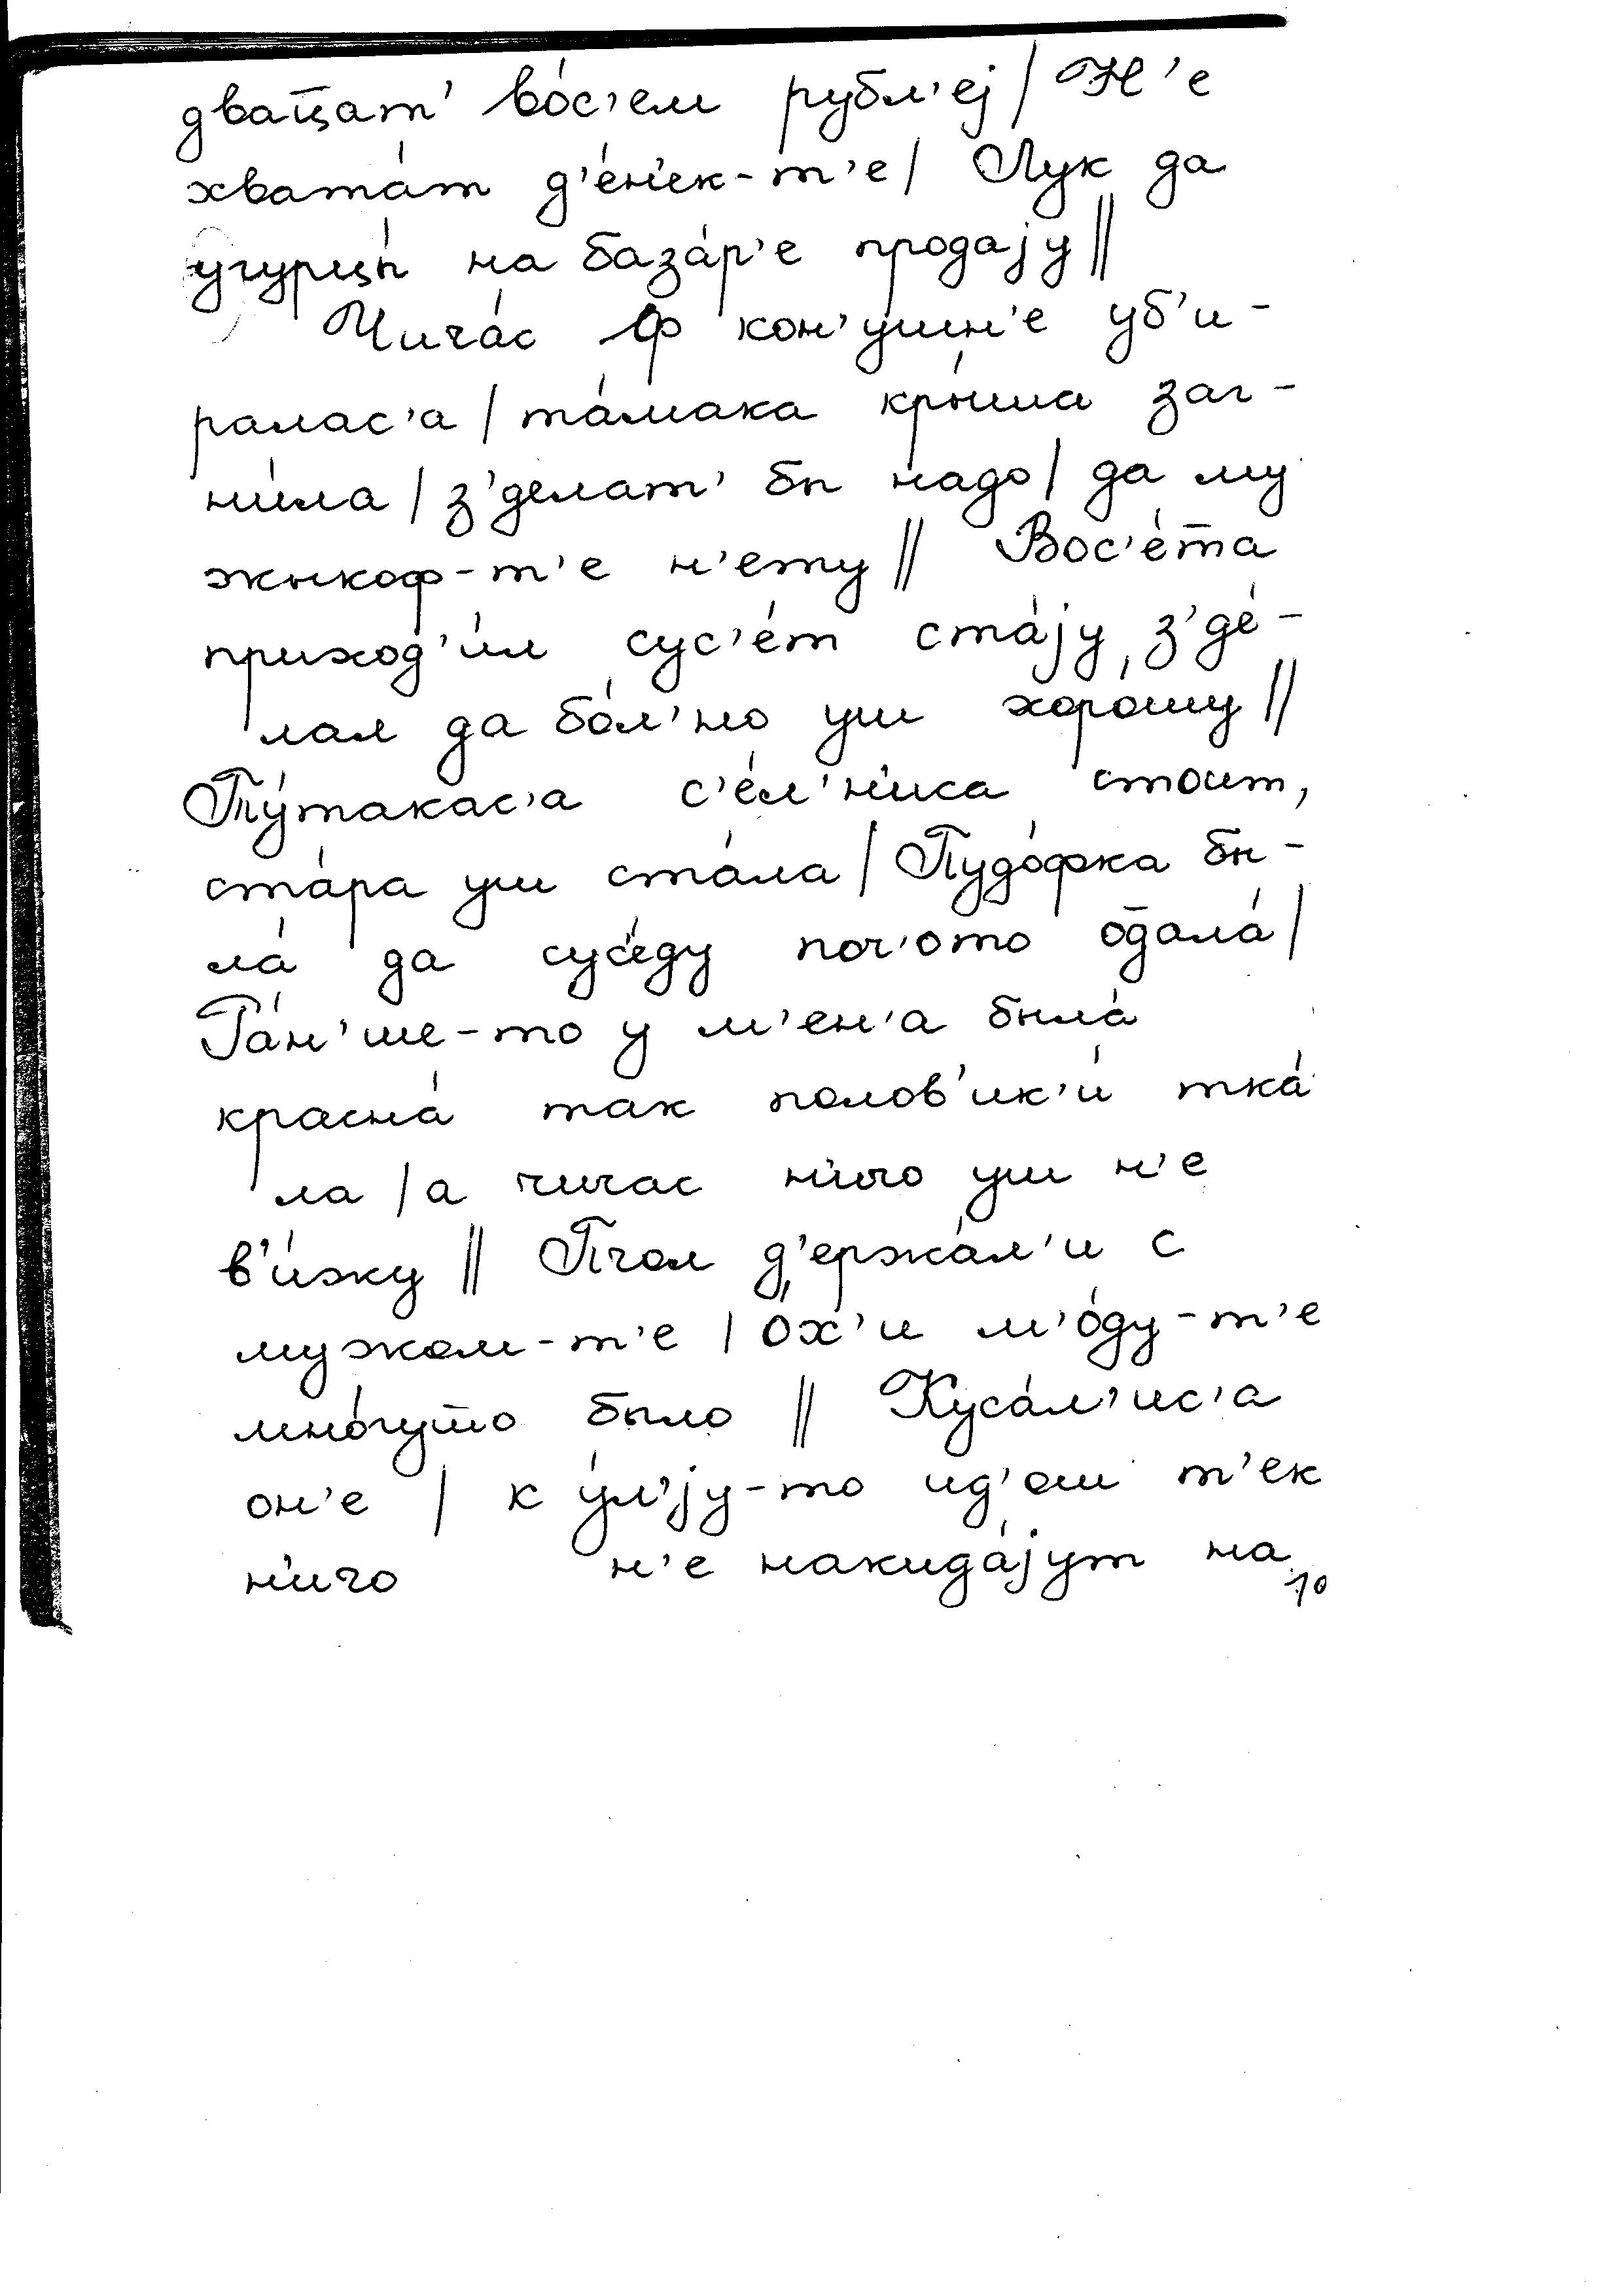 двац̄ат' во́с'ем рубл'еј / Н'е
хвата́т д'е́н'ек-т'е / Лук да
угурцы́ на база́р'е продају //
Чича́с ф кон'у́шн'е уб'и-
ралас'а / та́мака кры́ша заг-
ни́ла / з'делат' бы надо / да му
жыкоф-т'е н'ету // Вос'е́т̄а
приход'и́л сус'е́т ста́ју, з'де́-
лал да бо́л'но уш хоро́шу //
Ту́такас'а с'е́л'н'иса стоит,
ста́ра уш ста́ла / Пудо́фка бы-
ла́ да сус'е́ду поч'ото од̄ала́ /
Ра́н'ше-то у м'ен'а была́
красна́ так полов'ик'и́ тка́
ла / а чичас н'ичо уш н'е
в'и́жу // Пчол д'ержа́л'и с
мужом-т'е / Ох'и м'о́ду-т'е
мно́гут̄о было // Куса́л'ис'а
он'е / к у́л'ју-то ид'ош т'ек
н'ичо н'е накида́јут на
10